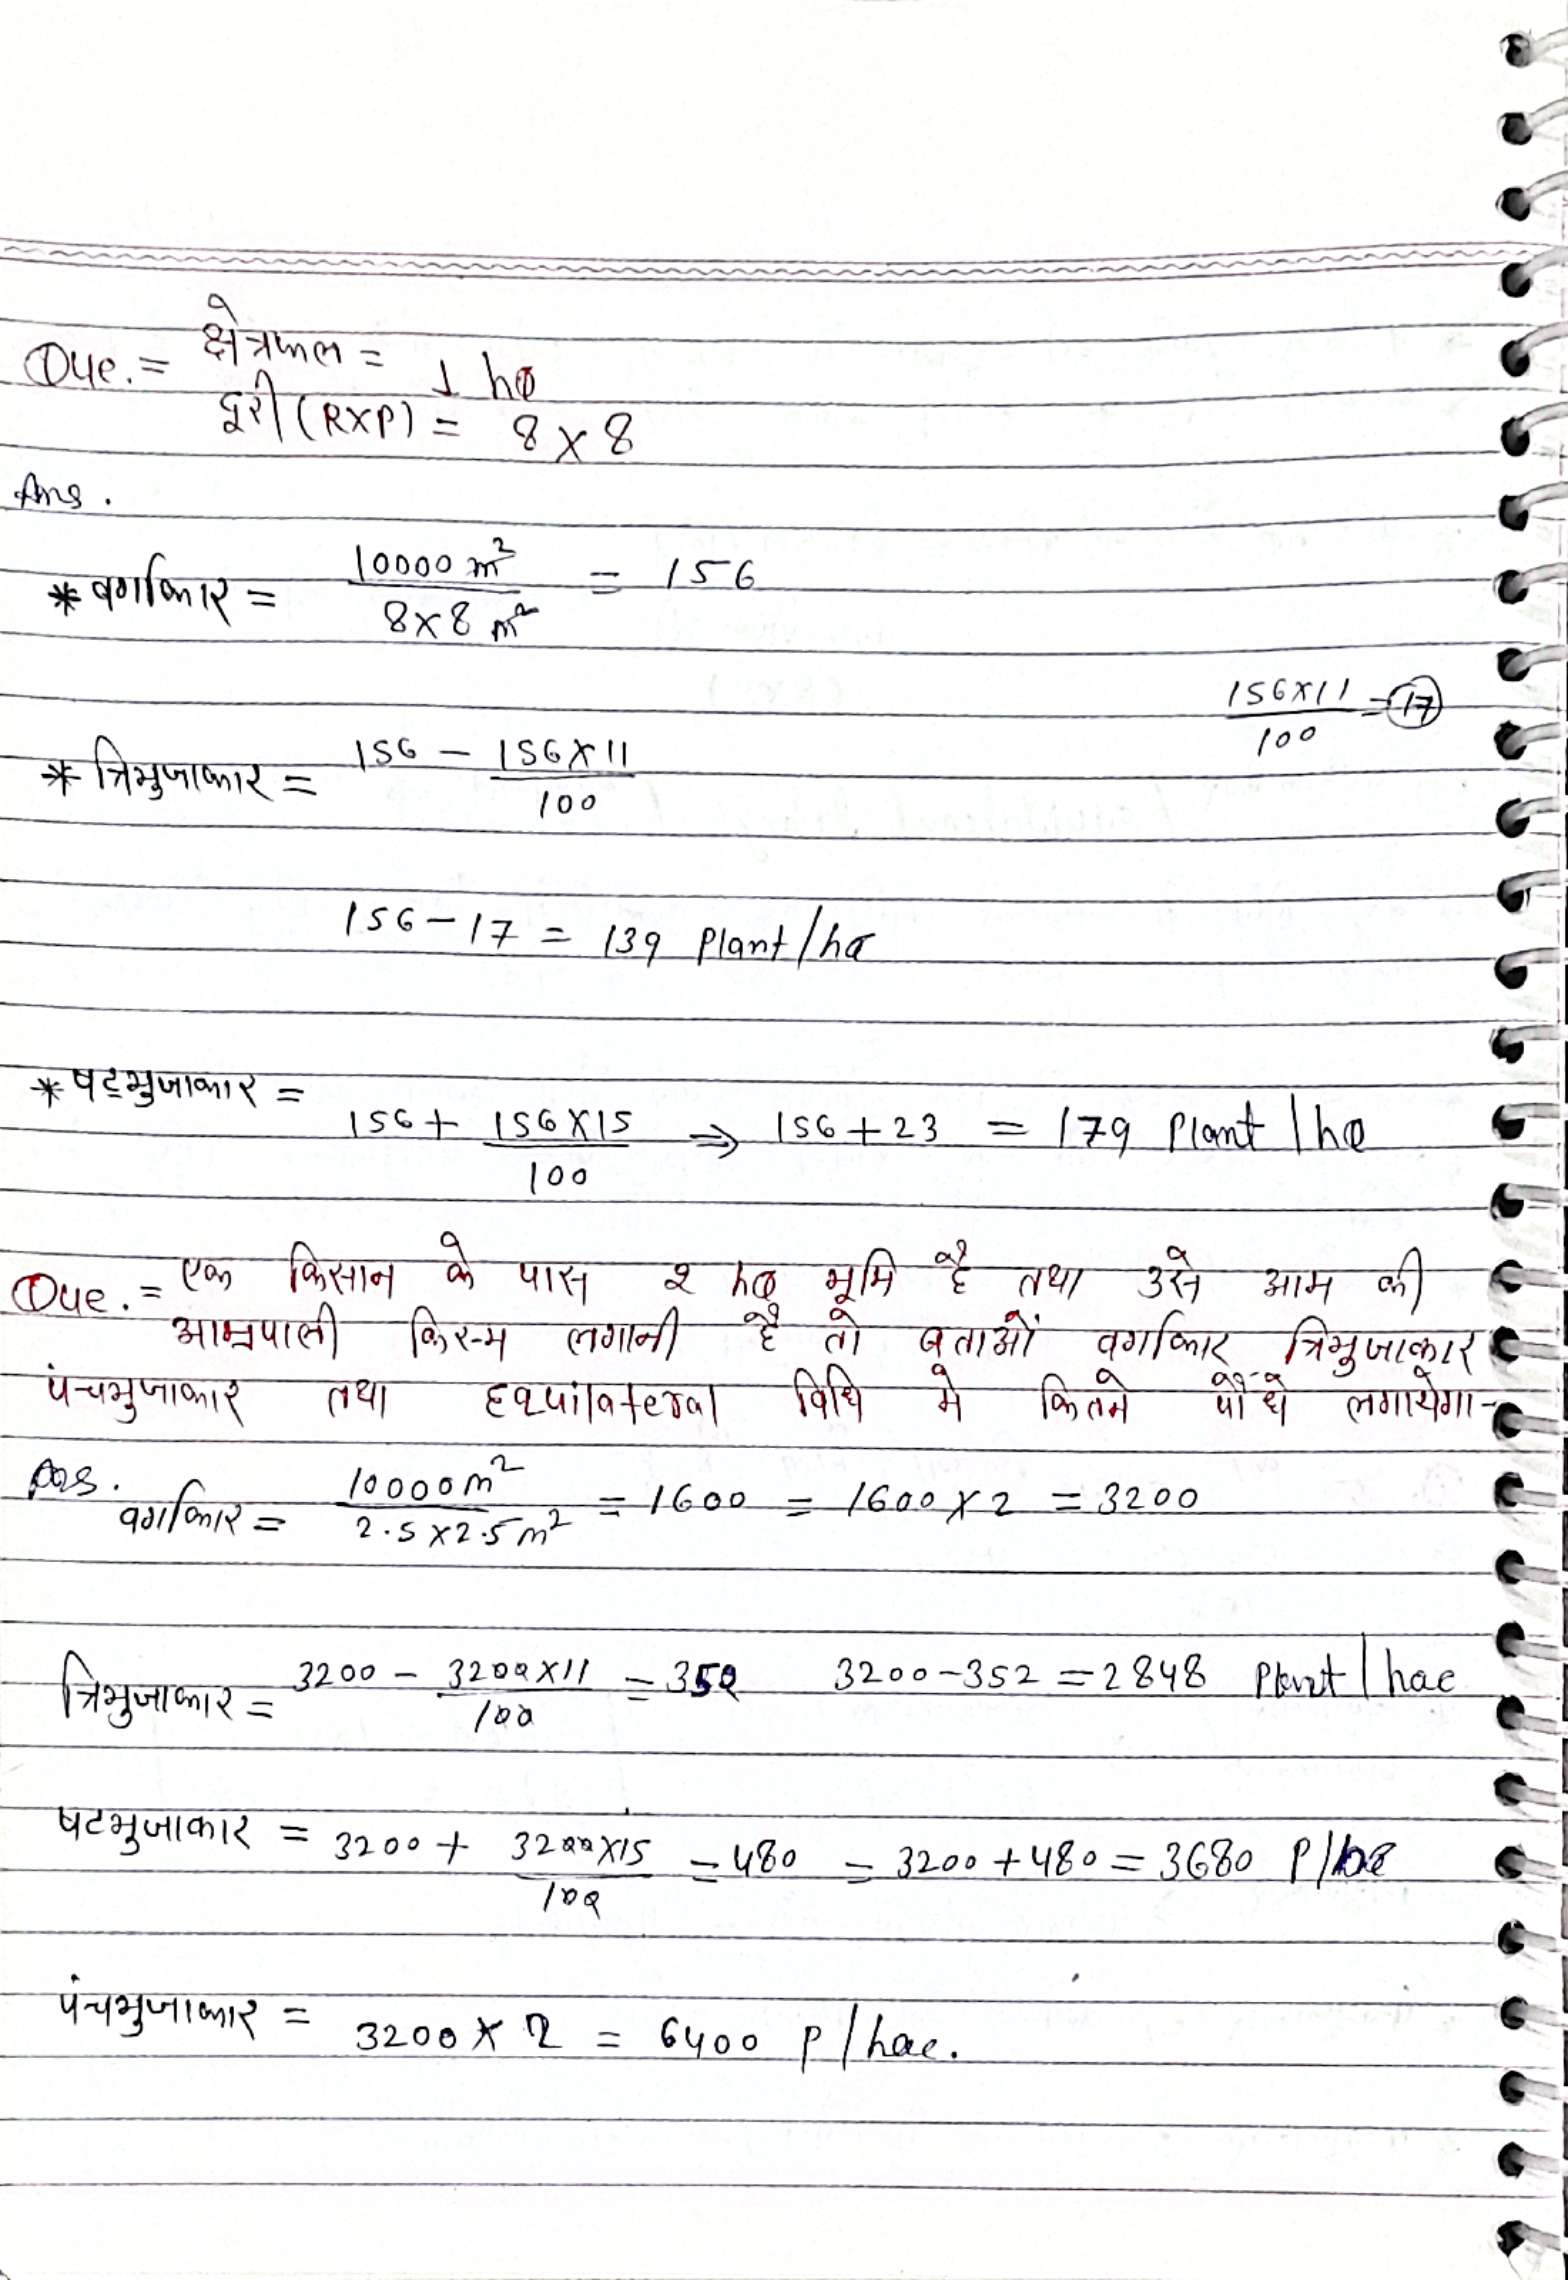 Que. = क्षेत्रफल = 1 ha
दूरी (RXP) = 8 x 8
Ans.
* वर्गाकार = 10000 m² / 8x8 m² = 156
156x11 / 100 = 17
* त्रिभुजाकार = 156 - 156x11 / 100
156 - 17 = 139 Plant/ha
* षट्भुजाकार =
156 + 156x15 / 100 ⇒ 156 + 23 = 179 Plant/ha
Que. = एक किसान के पास 2 ha भूमि है तथा उसे आम की
आम्रपाली किस्म लगानी है तो बताओं वर्गाकार त्रिभुजाकार
पंचभुजाकार तथा Equilateral विधि मे कितने पौधे लगायेगा-
Ans.
वर्गाकार = 10000 m² / 2.5x2.5 m² = 1600 = 1600 x 2 = 3200
त्रिभुजाकार = 3200 - 3200x11 / 100 = 352 3200-352 = 2848 Plant/hac
षटभुजाकार = 3200 + 3200x15 / 100 = 480 = 3200+480 = 3680 P/ha
पंचभुजाकार = 3200 x 2 = 6400 P/hac.